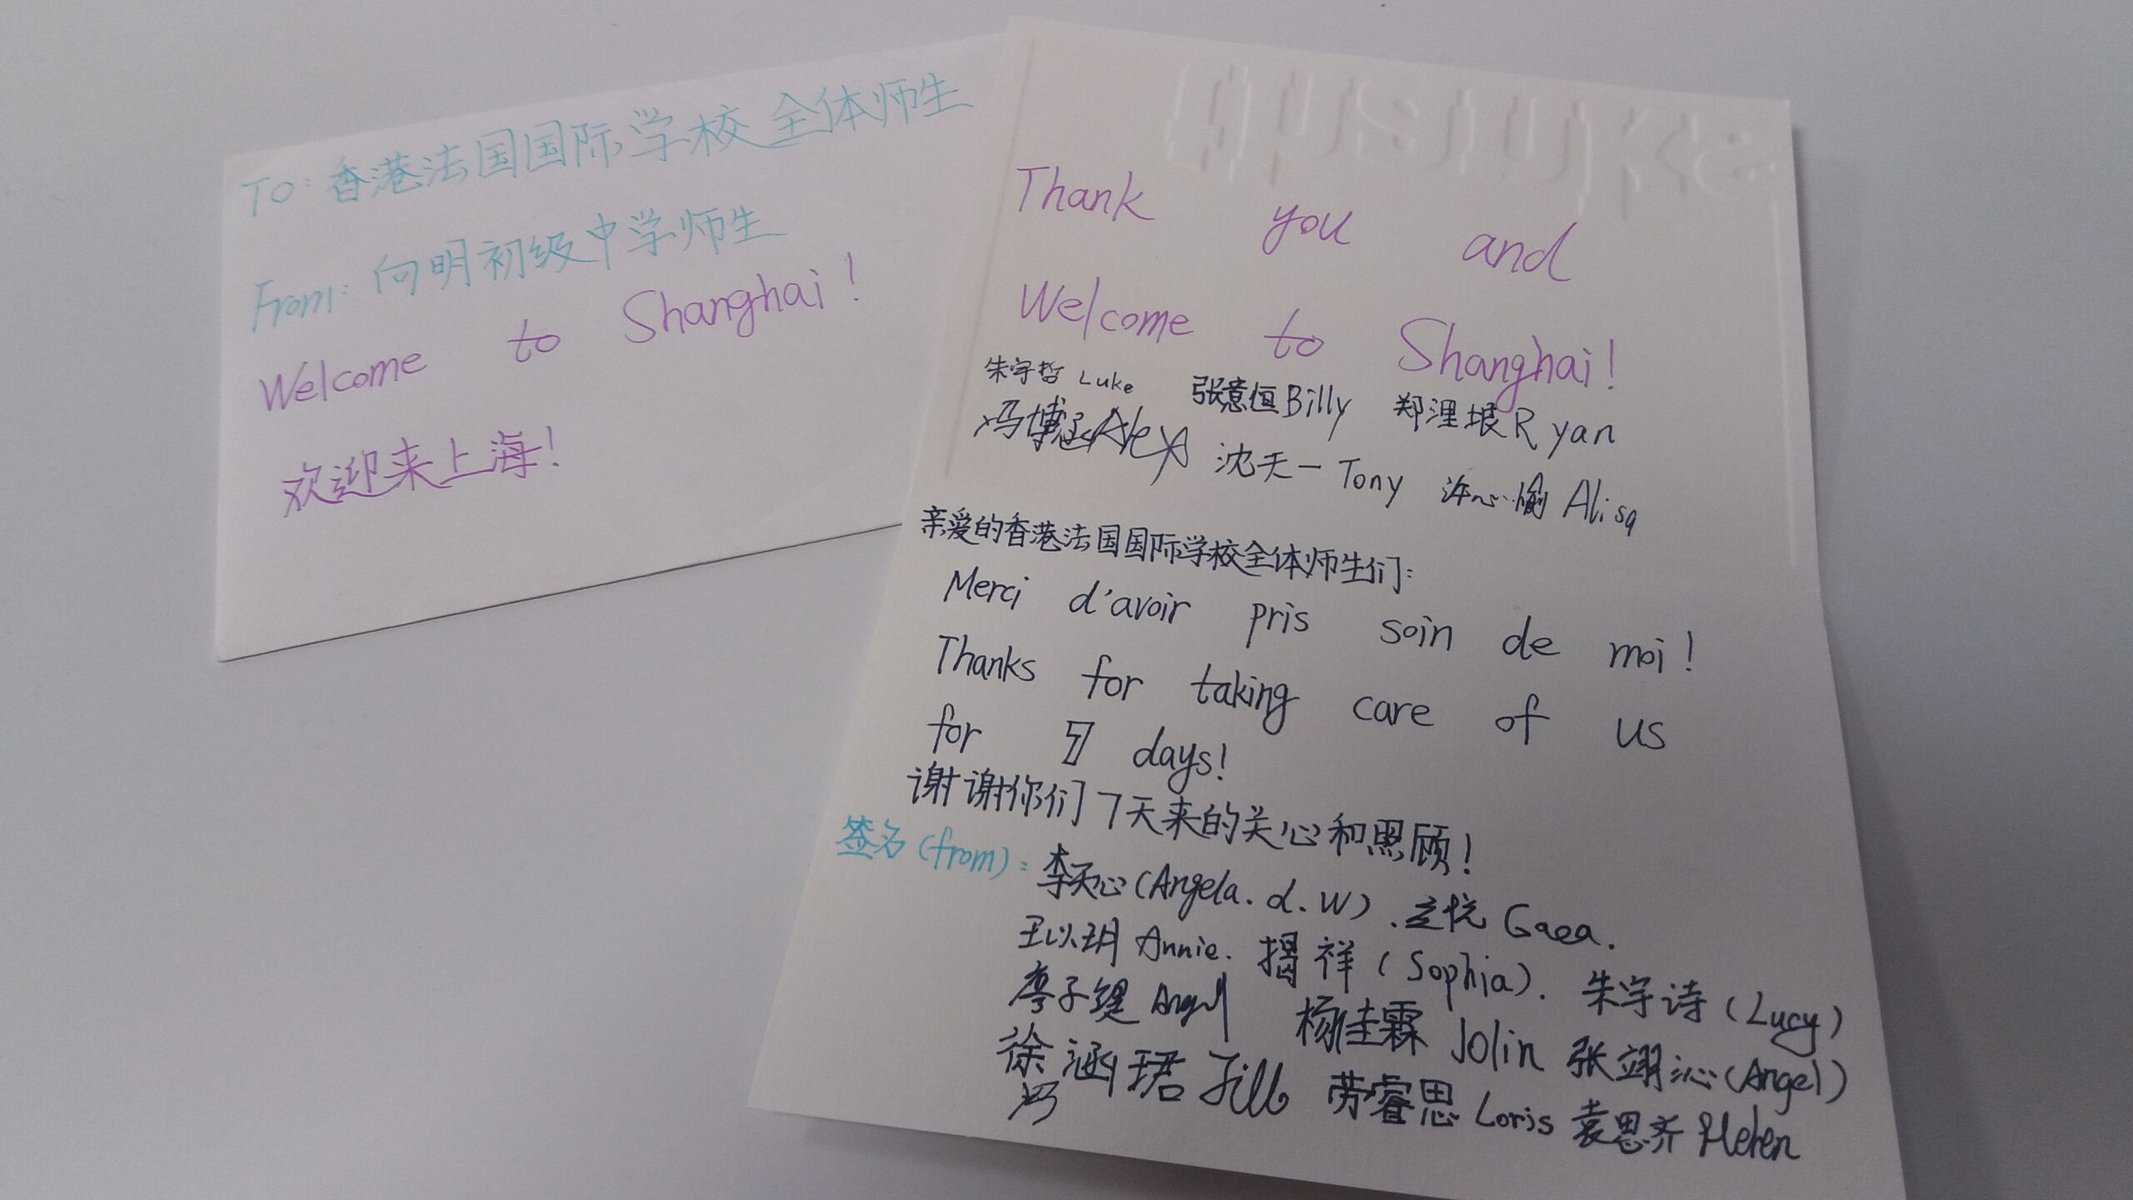 To: 香港法国国际学校全体师生
From: 向明初级中学师生
Welcome to Shanghai!
欢迎来上海!
Thank you and
Welcome to Shanghai!
朱宇哲 Luke 张意恒 Billy 郑浬垠 Ryan
冯博涵 Alex 沈天一 Tony 许心愉 Alisa
亲爱的香港法国国际学校全体师生们:
Merci d'avoir pris soin de moi!
Thanks for taking care of us
for 7 days!
谢谢你们7天来的关心和照顾!
签名(from): 李天心(Angela.d.w). Gaea.
王以玥 Annie. 揭祥(Sophia). 朱宇诗(Lucy)
廖子缇 Angel 杨佳霖 Jolin 张翊沁(Angel)
徐涵珺 Jill 劳睿思 Loris 袁思齐 Helen